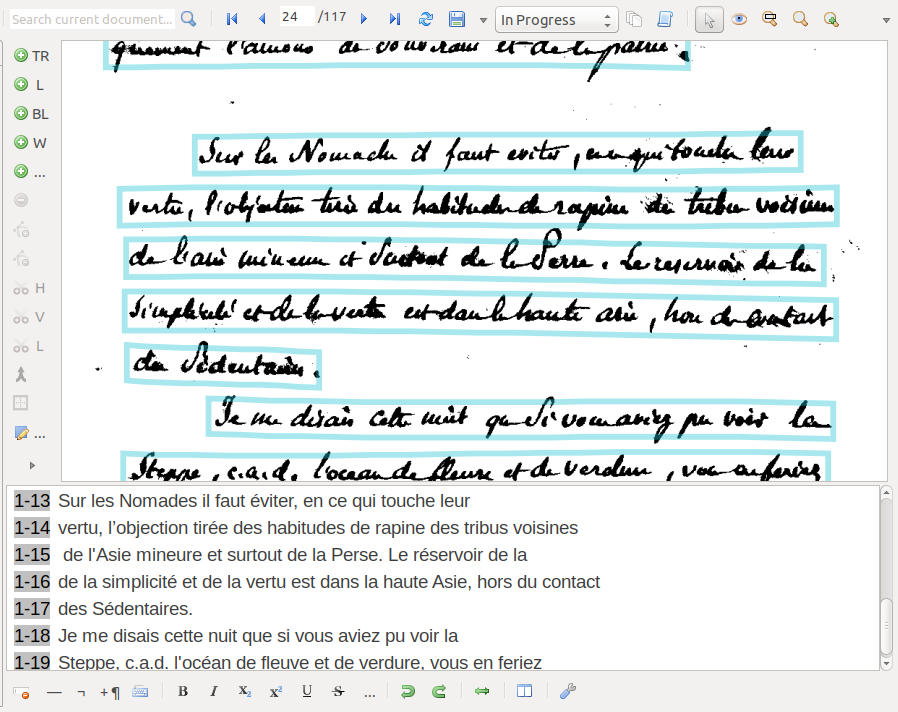 Search current document...
24 /117
In Progress
TR
L
BL
W
...
H
V
L
...
quement l'amour du souverain et de la patrie.
Sur les Nomades il faut eviter, en ce qui touche leur
vertu, l'objection tirée des habitudes de rapine des tribus voisines
de l'asie mineure et surtout de la Perse. Le reservoir de la
simplicité et de la vertu est dans la haute asie, hors du contact
des Sédentaires.
Je me disais cette nuit que si vous aviez pu voir la
Steppe, c.a.d. l'ocean de fleurs et de verdure, vous en feriez
1-13 Sur les Nomades il faut éviter, en ce qui touche leur
1-14 vertu, l’objection tirée des habitudes de rapine des tribus voisines
1-15 de l'Asie mineure et surtout de la Perse. Le réservoir de la
1-16 de la simplicité et de la vertu est dans la haute Asie, hors du contact
1-17 des Sédentaires.
1-18 Je me disais cette nuit que si vous aviez pu voir la
1-19 Steppe, c.a.d. l'océan de fleuve et de verdure, vous en feriez
— ¬ +¶ B I X₂ x² U S ...